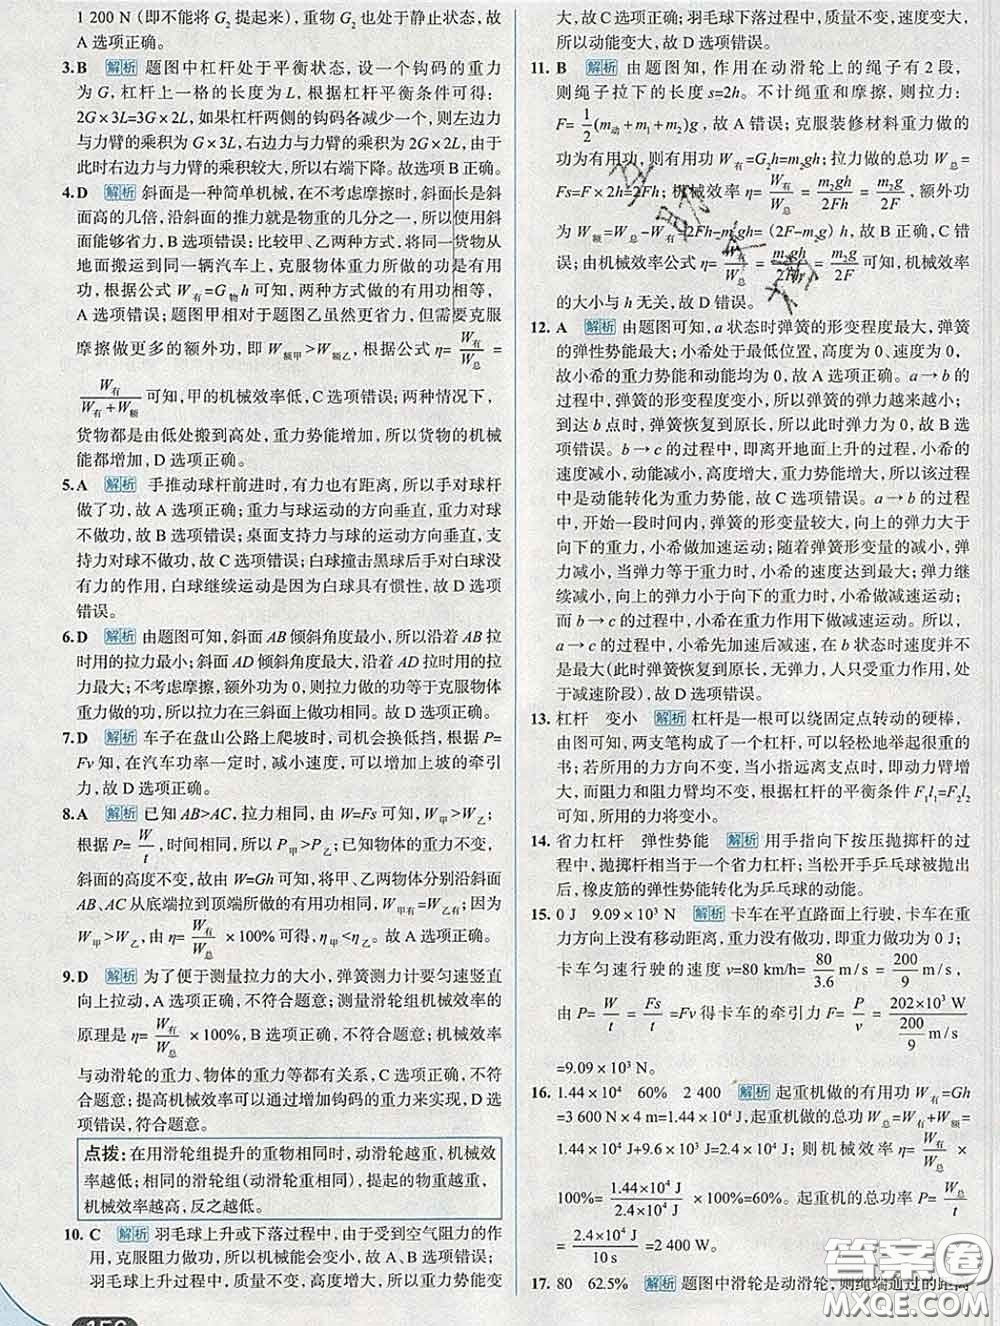 1 200 N(即不能将 G₂ 提起来),重物 G₂ 也处于静止状态,故
A 选项正确。
3. B 解析 题图中杠杆处于平衡状态,设一个钩码的重力
为 G,杠杆上一格的长度为 L,根据杠杆平衡条件可得:
2G×3L=3G×2L,如果杠杆两侧的钩码各减少一个,则左边力
与力臂的乘积为 G×3L,右边力与力臂的乘积为 2G×2L,由于
此时右边力与力臂的乘积较大,所以右端下降。故选项 B 正确。
4. D 解析 斜面是一种简单机械,在不考虑摩擦时,斜面长是斜
面高的几倍,沿斜面的推力就是物重的几分之一,所以使用斜
面能够省力,B 选项错误;比较甲、乙两种方式,将同一货物从
地面搬运到同一辆汽车上,克服物体重力所做的功是有用
功,根据公式 W有=G物h 可知,两种方式做的有用功相等,
A 选项错误;题图甲相对于题图乙虽然更省力,但需要克服
摩擦做更多的额外功,即 W额甲>W额乙,根据公式 η=W有/W总=
W有/(W有+W额)可知,甲的机械效率低,C 选项错误;两种情况下,
货物都是由低处搬到高处,重力势能增加,所以货物的机械
能都增加,D 选项正确。
5. A 解析 手推动球杆前进时,有力也有距离,所以手对球杆
做了功,故 A 选项正确;重力与球运动的方向垂直,重力不
对球做功,故 B 选项错误;桌面支持力与球的运动方向垂直,支
持力对球不做功,故 C 选项错误;白球撞击黑球后手对白球没
有力的作用,白球继续运动是因为白球具有惯性,故 D 选项
错误。
6. D 解析 由题图可知,斜面 AB 倾斜角度最小,所以沿着 AB 拉
时用的拉力最小;斜面 AD 倾斜角度最大,沿着 AD 拉时用的拉
力最大;不考虑摩擦,额外功为 0,则拉力做的功等于克服物体
重力所做的功,所以拉力在三斜面上做功相同。故 D 选项正确。
7. D 解析 车子在盘山公路上爬坡时,司机会换低挡,根据 P=
Fv 知,在汽车功率一定时,减小速度,可以增加上坡的牵引
力,故 D 选项正确。
8. A 解析 已知 AB>AC,拉力相同,由 W=Fs 可知,W甲>W乙;
根据 P=W/t,时间相同,所以 P甲>P乙;物体的重力不变,
斜面的高度不变,故由 W=Gh 可知,将甲、乙两物体分别沿斜面
AB、AC 从底端拉到顶端所做的有用功相同(W甲有=W乙有);因为
W甲>W乙,由 η=W有/W总×100%可得,η甲<η乙。故 A 选项正确。
9. D 解析 为了便于测量拉力的大小,弹簧测力计要匀速竖直
向上拉动,A 选项正确,不符合题意;测量滑轮组机械效率的
原理是 η=W有/W总×100%,B 选项正确,不符合题意;机械效率
与动滑轮的重力、物体的重力等都有关系,C 选项正确,不符
合题意;提高机械效率可以通过增加钩码的重力来实现,D 选
项错误,符合题意。
点拨:在用滑轮组提升的重物相同时,动滑轮越重,机械效
率越低;相同的滑轮组(动滑轮重相同),提起的物重越重,
机械效率越高,反之越低。
10. C 解析 羽毛球上升或下落过程中,由于受到空气阻力的作
用,克服阻力做功,所以机械能会变小,故 A、B 选项错误;
羽毛球上升过程中,质量不变,高度变大,所以重力势能变
大,故 C 选项正确;羽毛球下落过程中,质量不变,速度变大,
所以动能变大,故 D 选项错误。
11. B 解析 由题图知,作用在动滑轮上的绳子有 2 段,
则绳子拉下的长度 s=2h。不计绳重和摩擦,则拉力:
F=1/2(m动+m₁+m₂)g,故 A 错误;克服装修材料重力做的
功为有用功,则有用功 W有=G₂h=m₂gh;拉力做的总功 W总=
Fs=F×2h=2Fh;机械效率 η=W有/W总=m₂gh/2Fh=m₂g/2F,额外功
为 W额=W总-W有=2Fh-m₂gh=(2F-m₂g)h,故 B 正确,C 错
误;由机械效率公式 η=W有/W总=m₂gh/2Fh=m₂g/2F 可知,机械效率
的大小与 h 无关,故 D 错误。
12. A 解析 由题图可知,a 状态时弹簧的形变程度最大,弹簧
的弹性势能最大;小希处于最低位置,高度为 0、速度为 0,
故小希的重力势能和动能均为 0,故 A 选项正确。a→b 的
过程中,弹簧的形变程度变小,弹簧的弹力越来越小;
到达 b 点时,弹簧恢复到原长,所以此时弹力为 0,故 B 选
项错误。b→c 的过程中,即离开地面上升的过程,小希的
速度减小,动能减小,高度增大,重力势能增大,所以该过程
中是动能转化为重力势能,故 C 选项错误。a→b 的过程
中,开始一段时间内,弹簧的形变量较大,向上的弹力大于
向下的重力,小希做加速运动;随着弹簧形变量的减小,弹
力减小,当弹力等于重力时,小希的速度达到最大;弹力继
续减小,向上的弹力小于向下的重力时,小希做减速运动;
而 b→c 的过程中,小希在重力作用下做减速运动。所以
a→c 的过程中,小希先加速后减速,在 b 状态时速度并不
是最大(此时弹簧恢复到原长,无弹力,人只受重力作用,处
于减速阶段),故 D 选项错误。
13. 杠杆 变小 解析 杠杆是一根可以绕固定点转动的硬棒,
由图可知,两支笔构成了一个杠杆,可以轻松地举起很重的
书;若所用的力方向不变,当小指远离支点时,即动力臂增
大,而阻力和阻力臂均不变,根据杠杆的平衡条件 F₁l₁=F₂l₂
可知,所用的力将变小。
14. 省力杠杆 弹性势能 解析 用手指向下按压抛掷杆的过
程中,抛掷杆相当于一个省力杠杆;当松开手乒乓球被抛出
后,橡皮筋的弹性势能转化为乒乓球的动能。
15. 0 J 9.09×10³ N 解析 卡车在平直路面上行驶,卡车在重
力方向上没有移动距离,重力没有做功,即重力做功为 0 J;
卡车匀速行驶的速度 v=80 km/h=80/3.6 m/s=200/9 m/s,
由 P=W/t=Fs/t=Fv 得卡车的牵引力 F=P/v=(202×10³ W)/(200/9 m/s)
=9.09×10³ N。
16. 1.44×10⁴ 60% 2 400 解析 起重机做的有用功 W有=Gh
=3 600 N×4 m=1.44×10⁴ J,起重机做的总功 W总=W有+W额=
1.44×10⁴ J+9.6×10³ J=2.4×10⁴ J;则机械效率 η=W有/W总×
100%=(1.44×10⁴ J)/(2.4×10⁴ J)×100%=60%。起重机的总功率 P=W总/t
=(2.4×10⁴ J)/(10 s)=2 400 W。
17. 80 62.5% 解析 题图中滑轮是动滑轮,则绳端通过的距离
156
答案圈
MXQE.COM